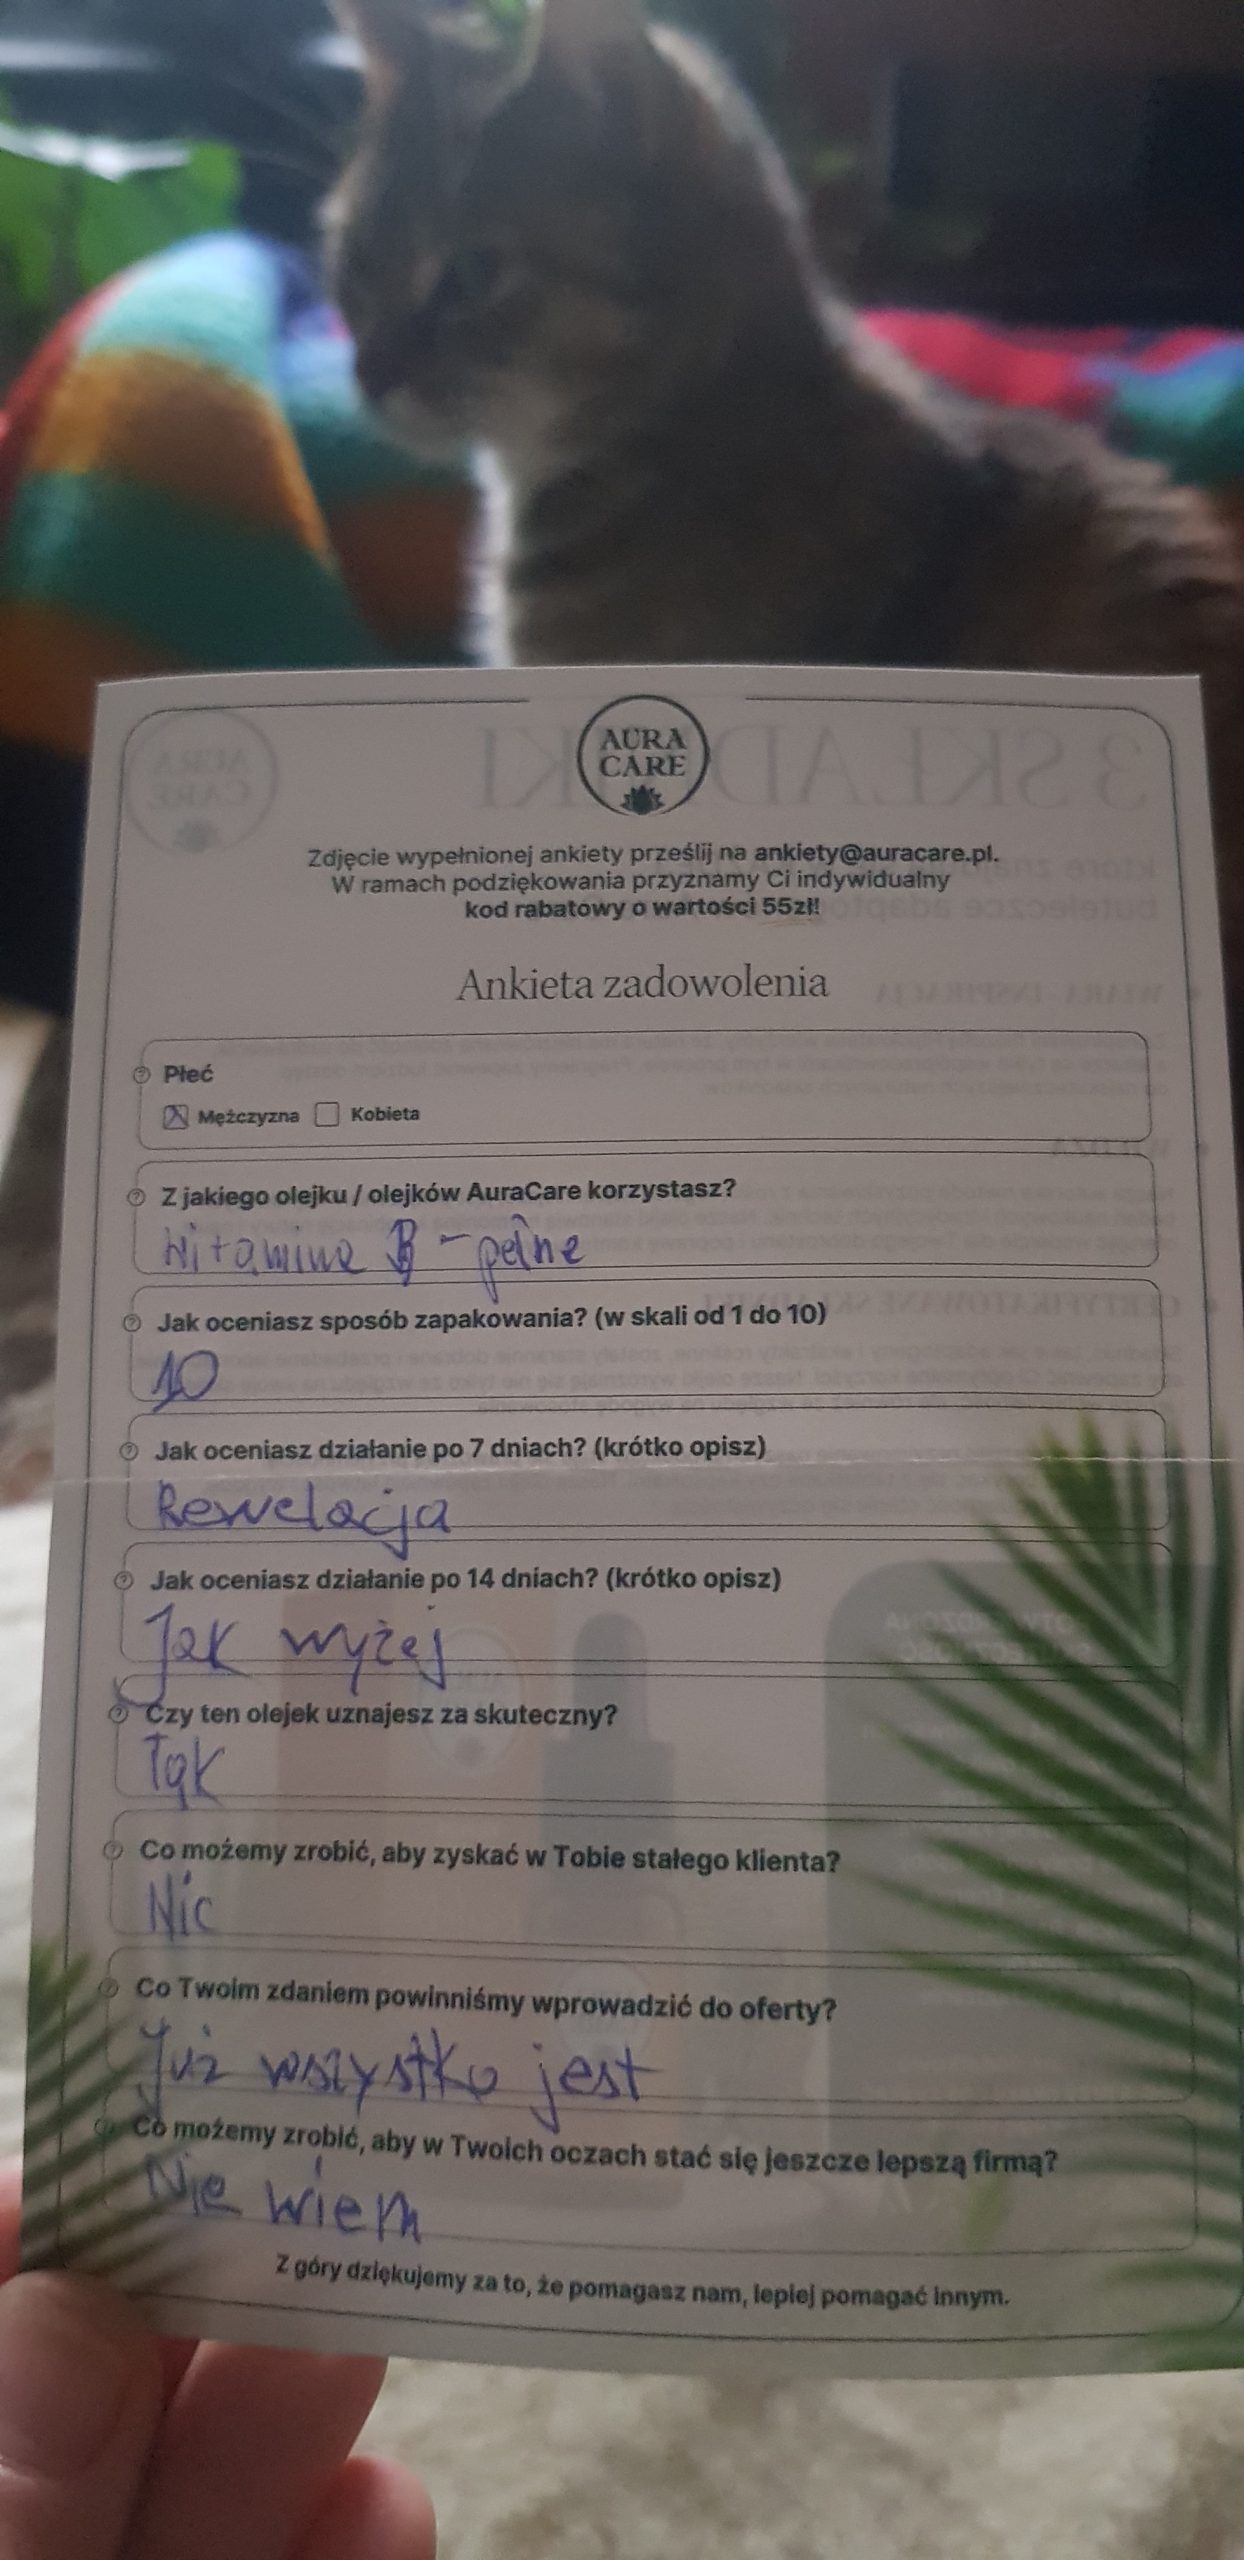 AURA
CARE
Zdjęcie wypełnionej ankiety prześlij na ankiety@auracare.pl.
W ramach podziękowania przyznamy Ci indywidualny
kod rabatowy o wartości 55zł!
Ankieta zadowolenia
Płeć
Mężczyzna Kobieta
Z jakiego olejku / olejków AuraCare korzystasz?
Witamina B - pełne
Jak oceniasz sposób zapakowania? (w skali od 1 do 10)
10
Jak oceniasz działanie po 7 dniach? (krótko opisz)
Rewelacja
Jak oceniasz działanie po 14 dniach? (krótko opisz)
Jak wyżej
Czy ten olejek uznajesz za skuteczny?
Tak
Co możemy zrobić, aby zyskać w Tobie stałego klienta?
Nic
Co Twoim zdaniem powinniśmy wprowadzić do oferty?
Już wszystko jest
Co możemy zrobić, aby w Twoich oczach stać się jeszcze lepszą firmą?
Nie wiem
Z góry dziękujemy za to, że pomagasz nam, lepiej pomagać innym.